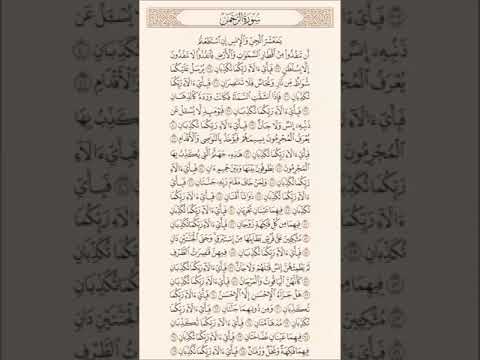 سورة الرحمن
يمعشر الجن والإنس إن استطعتم
أن تنفذوا من أقطار السموت والأرض فانفذوا لا تنفذون
إلا بسلطن فبأي ءالاء ربكما تكذبان يرسل عليكما
شواظ من نار ونحاس فلا تنتصران فبأي ءالاء ربكما
تكذبان فإذا انشقت السماء فكانت وردة كالدهان
فبأي ءالاء ربكما تكذبان فيومئذ لا يسئل عن
ذنبه إنس ولا جان فبأي ءالاء ربكما تكذبان
يعرف المجرمون بسيمهم فيؤخذ بالنوصي والأقدام
فبأي ءالاء ربكما تكذبان هذه جهنم التي يكذب بها
المجرمون يطوفون بينها وبين حميم ءان فبأي ءالاء
ربكما تكذبان ولمن خاف مقام ربه جنتان فبأي
ءالاء ربكما تكذبان ذواتا أفنان فبأي ءالاء ربكما
تكذبان فيهما عينان تجريان فبأي ءالاء ربكما تكذبان
فيهما من كل فكهة زوجان فبأي ءالاء ربكما تكذبان
متكئين على فرش بطائنها من إستبرق وجنى الجنتين دان
فبأي ءالاء ربكما تكذبان فيهن قصرت الطرف
لم يطمثهن إنس قبلهم ولا جان فبأي ءالاء ربكما تكذبان
كأنهن الياقوت والمرجان فبأي ءالاء ربكما تكذبان
هل جزاء الإحسن إلا الإحسن فبأي ءالاء ربكما
تكذبان ومن دونهما جنتان فبأي ءالاء ربكما
تكذبان مدهامتان فبأي ءالاء ربكما تكذبان
فيهما عينان نضاختان فبأي ءالاء ربكما تكذبان
فيهما فكهة ونخل ورمان فبأي ءالاء ربكما